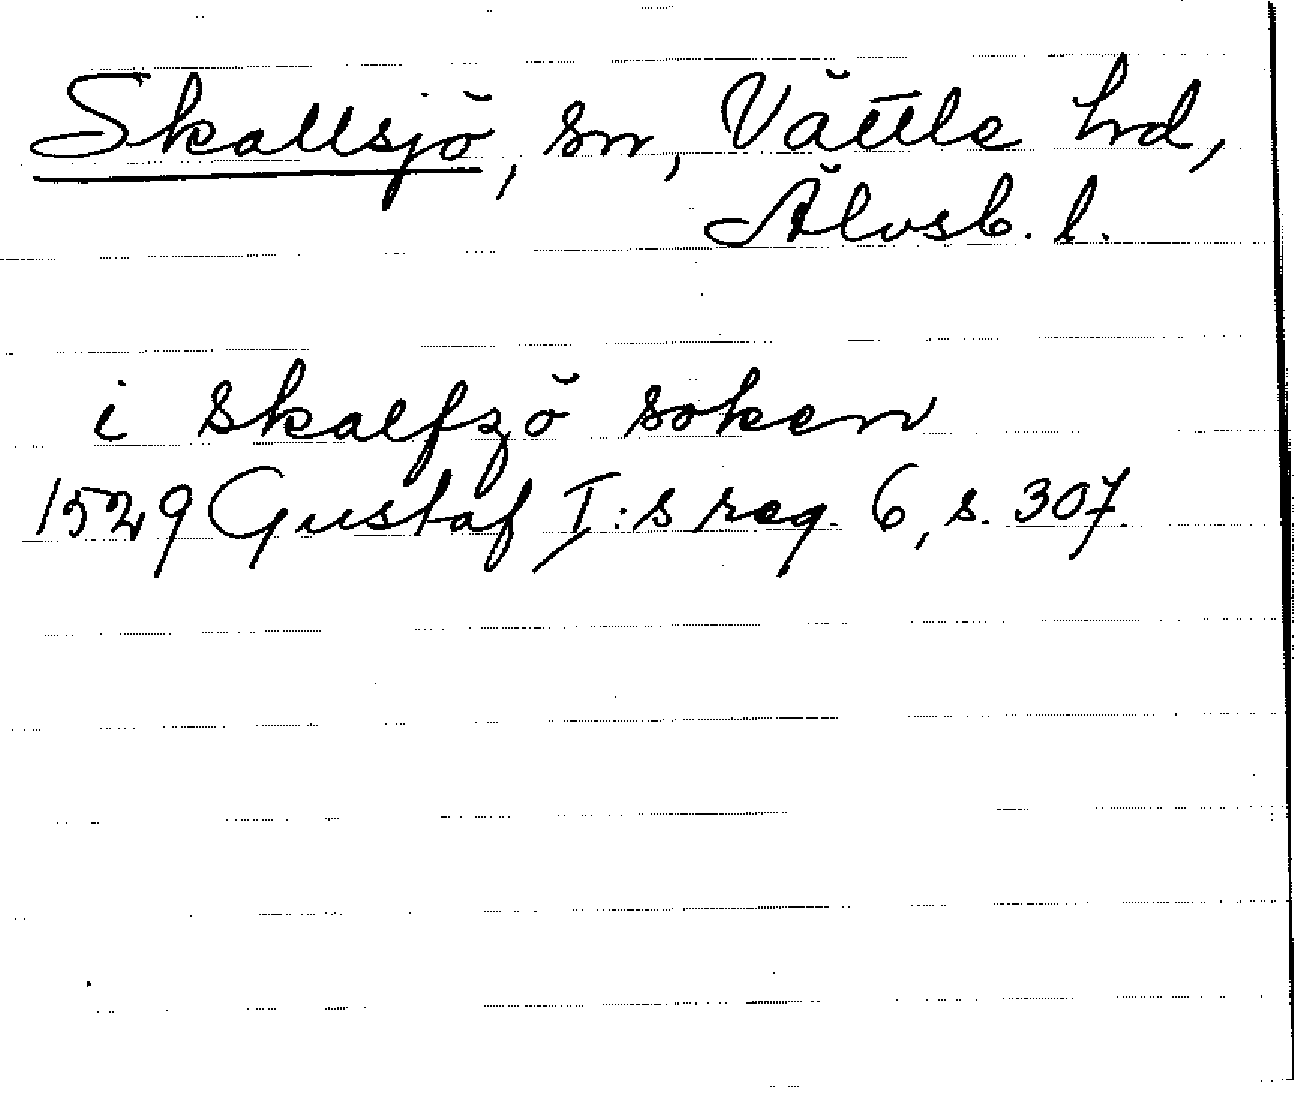 Skallsjö, sn, Vättle hd,
Älvsb. l.
i skalfzö soken
1529 Gustaf I:s reg. 6, s. 307.